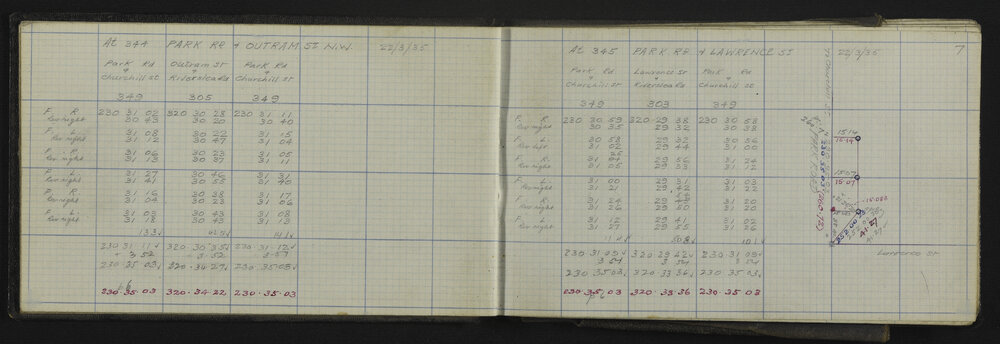 At 344 PARK Rd + OUTRAM ST N.W. 22/3/35
Park Rd + Churchill St Outram St + Kildrolea Rd Park Rd + Churchill St
349 305 349
F. R. 230 31 02 320 30 28 230 31 11
Rev right 30 43 30 20 30 40
F. L. 31 08 30 22 31 15
Rev right 31 12 30 47 31 04
F. R. 31 06 30 23 31 05
Rev right 31 13 30 37 31 11
F. L. 31 27 30 46 31 31
Rev right 31 41 30 55 31 40
F. R. 31 16 30 38 31 17
Rev right 31 04 30 23 31 06
F. L. 31 03 30 43 31 08
Rev right 31 18 30 43 31 13
133 141
230 31 11 320 30 35 230 31 12
+ 3 52 3 52
230 35 03 320 34 27 230 35 03
230 35 03 320 34 22 230 35 03
At 345 PARK RD + LAWRENCE ST 22/3/35 7
Park Rd + Churchill St Lawrence St + Park Rd + Churchill St
349 303 349
F. R. 230 30 59 320 29 38 230 30 58
Rev right 30 35 29 32 30 38
F. L. 30 58 29 32 30 56
Rev left 31 02 29 44 31 00
F. R. 29 56 31 24
Rev right 31 05 29 33 31 12
F. L. 31 00 29 31 31 03
Rev right 31 21 29 42 31 22
F. R. 31 24 31 20
Rev right 31 26 29 50 31 20
F. L. 31 12 29 41 31 02
Rev right 31 27 29 55 31 26
508 101
230 31 09 320 29 42 230 31 09
3 54 3 54 3 54
230 35 03 320 33 36 230 35 03
230 35 03 320 33 36 230 35 03
1514
15 14
1507
15 07
41.27
Lawrence St